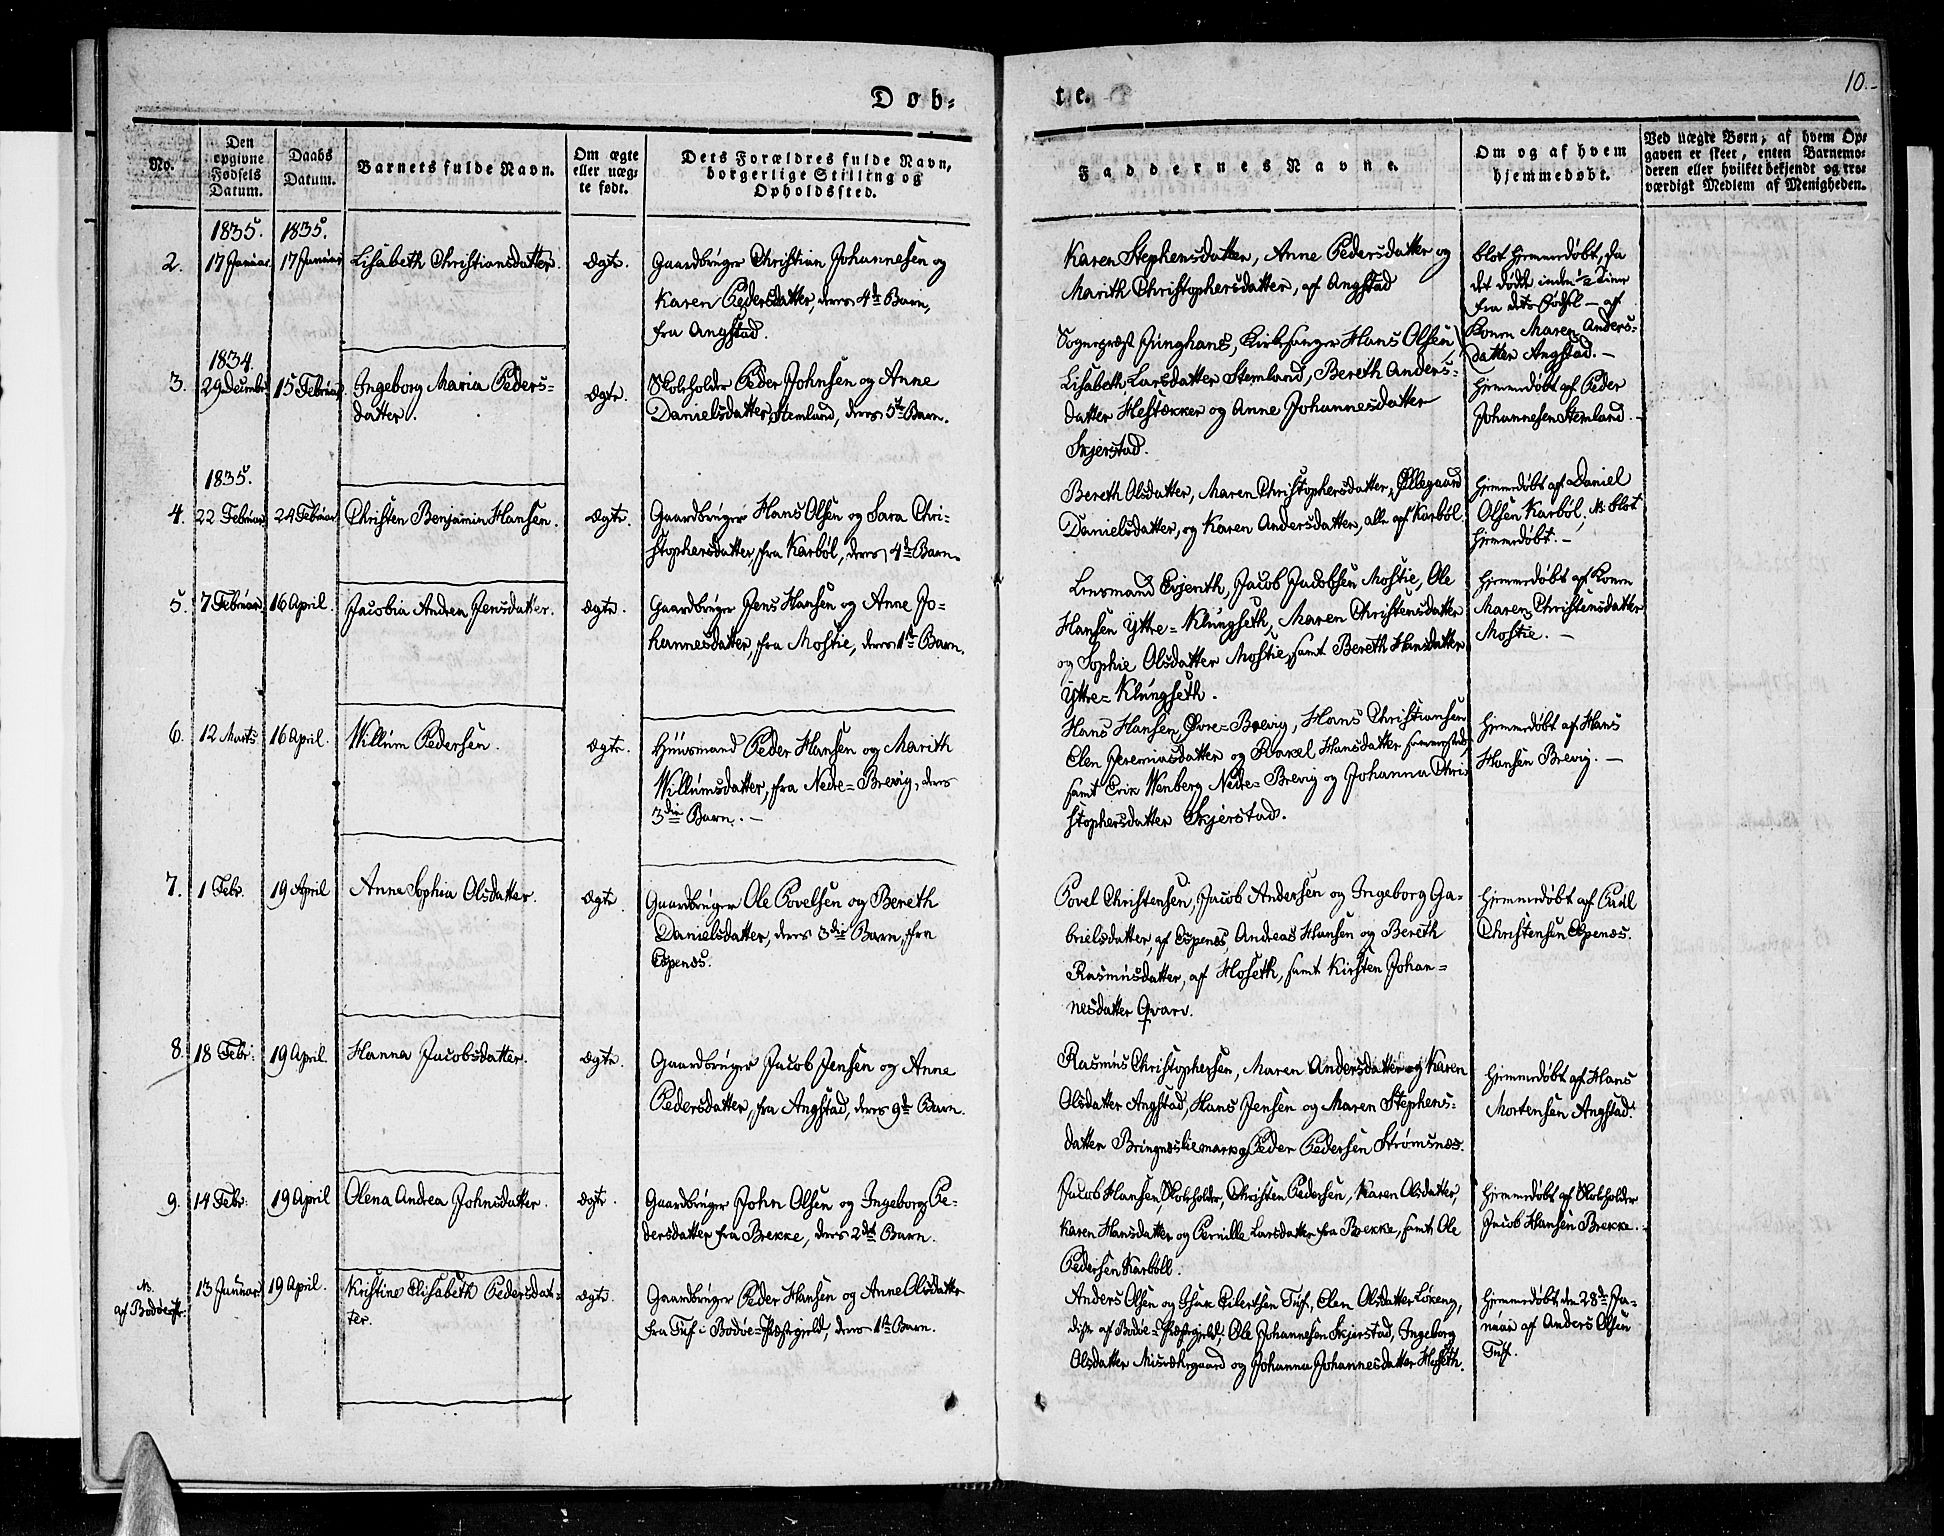 10.
Døb=
te.
No.
Den opgivne Fødsels Datum.
Daabs Datum.
Barnets fulde Navn.
Om ægte eller uæg= te født.
Dets Forældres fulde Navn, borgerlige Stilling og Opholdssted.
Faddernes Navne.
Om og af hvem hjemmedøbt.
Ved uægte Børn, af hvem Op= gaven er skeet, enten Barnemo= deren eller hvilket bekjendt og tro= værdigt Medlem af Menigheden.
1835. 1835.
2. 17 Januar 17 Januar Lisabeth Christiansdatter. Ægte.
Gaardbruger Christian Johannesen og
Karen Pedersdatter, deres 4de Barn,
fra Angstad.
Karen Stephensdatter, Anne Pedersdatter og
Marith Christophersdatter, af Angstad
blot hjemmedøbt, da
det døde inden 1/2 Time
fra dets Fødsel – af
Konen Maren Anders=
datter Angstad. –
1834.
3. 29 December 15 Februar Ingeborg Maria Peders=
datter.
Ægte.
Skoleholder Peder Johnsen og Anne
Danielsdatter, Stemland, deres 5te Barn.
Sognepræst Junghans, Kirkesanger Hans Olsen
Lisabeth Larsdatter Stemland, Bereth Anders=
datter Hestækker og Anne Johannesdatter
Skjerstad.
hjemmedøbt af Peder
Johannesen Stemland. –
1835.
4. 22 Februar 24 Februar Christen Benjamin Hansen. Ægte.
Gaardbruger Hans Olsen og Sara Chri=
stophersdatter, fra Karbøl, deres 4de Barn.
Bereth Olsdatter, Maren Christophersdatter, Øllegaard
Danielsdatter, og Karen Andersdatter, alle af Karbøl.
hjemmedøbt af Daniel
Olsen Karbøl, NB. blot
hjemmedøbt. –
5. 7 Februar 16 April. Jacobia Andrea Jensdatter. Ægte.
Gaardbruger Jens Hansen og Anne Jo=
hannesdatter, fra Mostie, deres 1te Barn.
Lensmand Evjenth, Jacob Jacobsen Mostie, Ole
Hansen Yttre=Klungseth, Maren Christensdatter
og Sophie Olsdatter Mostie, samt Bereth Hansdatter
Yttre=Klungseth.
hjemmedøbt af Konen
Maren Christensdatter
Mostie. –
6. 12 Marts 16 April. Willum Pedersen. Ægte.
Huusmand Peder Hansen og Marith
Willumsdatter, fra Nedre=Brevig, deres
3die Barn. –
Hans Hansen Øvre=Brevig, Hans Christiansen
Elen Jeremiasdatter og Rakel Hansdatter sammesteds
samt Erik Wenberg Nedre=Brevig og Johanna Chri
stophersdatter Skjerstad.
hjemmedøbt af Hans
Hansen Brevig. –
7. 1 Febr. 19 April Anne Sophia Olsdatter. Ægte.
Gaardbruger Ole Povelsen og Bereth
Danielsdatter, deres 3die Barn, fra
Espenes.
Povel Christensen, Jacob Andersen og Ingeborg Ga=
brielsdatter, af Espenes, Andreas Hansen og Bereth
Rasmusdatter, af Hoseth, samt Kirsten Johan=
nesdatter Qvarv.
hjemmedøbt af Paul
Christensen Espenæs.
8. 18 Febr: 19 April. Hanna Jacobsdatter. Ægte.
Gaardbruger Jacob Jensen og Anne
Pedersdatter, fra Angstad, deres 9de Barn.
Rasmus Christophersen, Maren Andersdatter og Karen
Olsdatter Angstad, Hans Jensen og Maren Stephens=
datter Bringnesliemark og Peder Pedersen Strømsnæs.
hjemmedøbt af Hans
Mortensen Angstad.
9. 14 Febr: 19 April Olena Andrea Johnsdatter. Ægte.
Gaardbruger John Olsen og Ingeborg Pe=
dersdatter fra Brekke, deres 2det Barn.
Jacob Hansen, Skoleholder, Christen Pedersen, Karen Olsdatter,
Karen Hansdatter og Pernille Larsdatter fra Brekke, samt Ole
Pedersen Karbøll.
hjemmedøbt af Skoleholder
Jacob Hansen Brekke. –
NB.
af Bodøe
13 Januar 19 April. Kristine Elisabeth Pedersdat=
ter.
Ægte.
Gaardbruger Peder Hansen og Anne Olsdatter
fra Tuf i Bodøe=Præstegjeld, deres 1te Barn.
Anders Olsen og Isak Eilertsen Tuf, Elen Olsdatter Løkeng,
disse af Bodøe=Præstegjeld, Ole Johannesen Skjerstad, Ingeborg
Olsdatter Misværgaard og Johanna Johannesdatter Hoseth.
hjemmedøbt den 28de Ja=
nuar af Anders Olsen
Tuf.